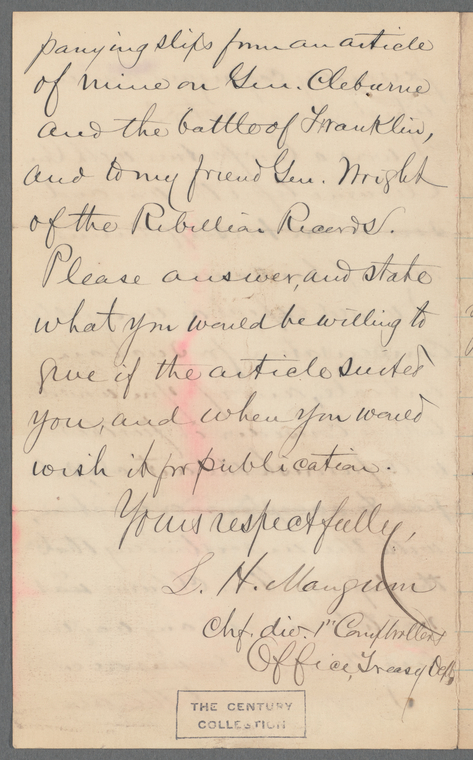 panying slips from an article
of mine on Gen. Cleburne
and the battle of Franklin,
and to my friend Gen. Wright
of the Rebellion Records.
Please answer, and state
what you would be willing to
give if the article suited
you, and when you would
wish it for publication.
Yours respectfully,
L. H. Mangum
Chf. div. 1st Comptrollers
Office, Treasy Dept.
THE CENTURY
COLLECTION